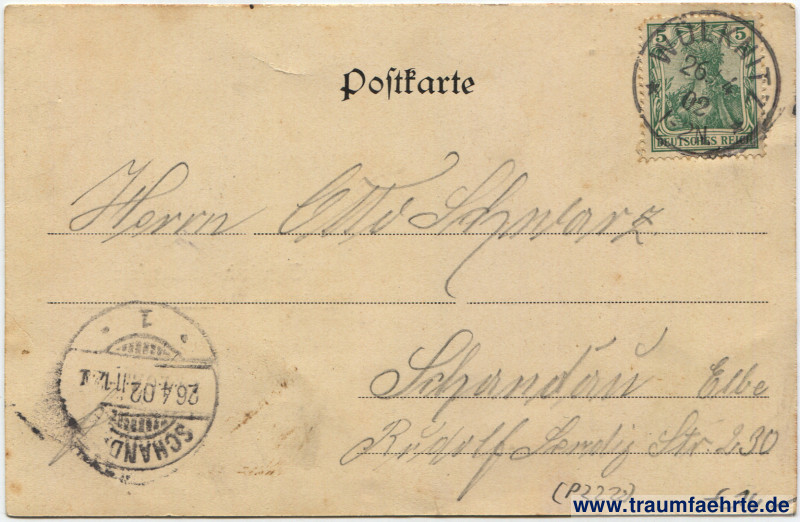 Postkarte
5 5
DEUTSCHES REICH
WÜLKNITZ
26 4
02
N
Herrn Otto Schwarz
Schandau Elbe
Rudolf Sendig Str. 230
1
26.4.02.11-12V.
SCHAND
(P2220)
www.traumfaehrte.de